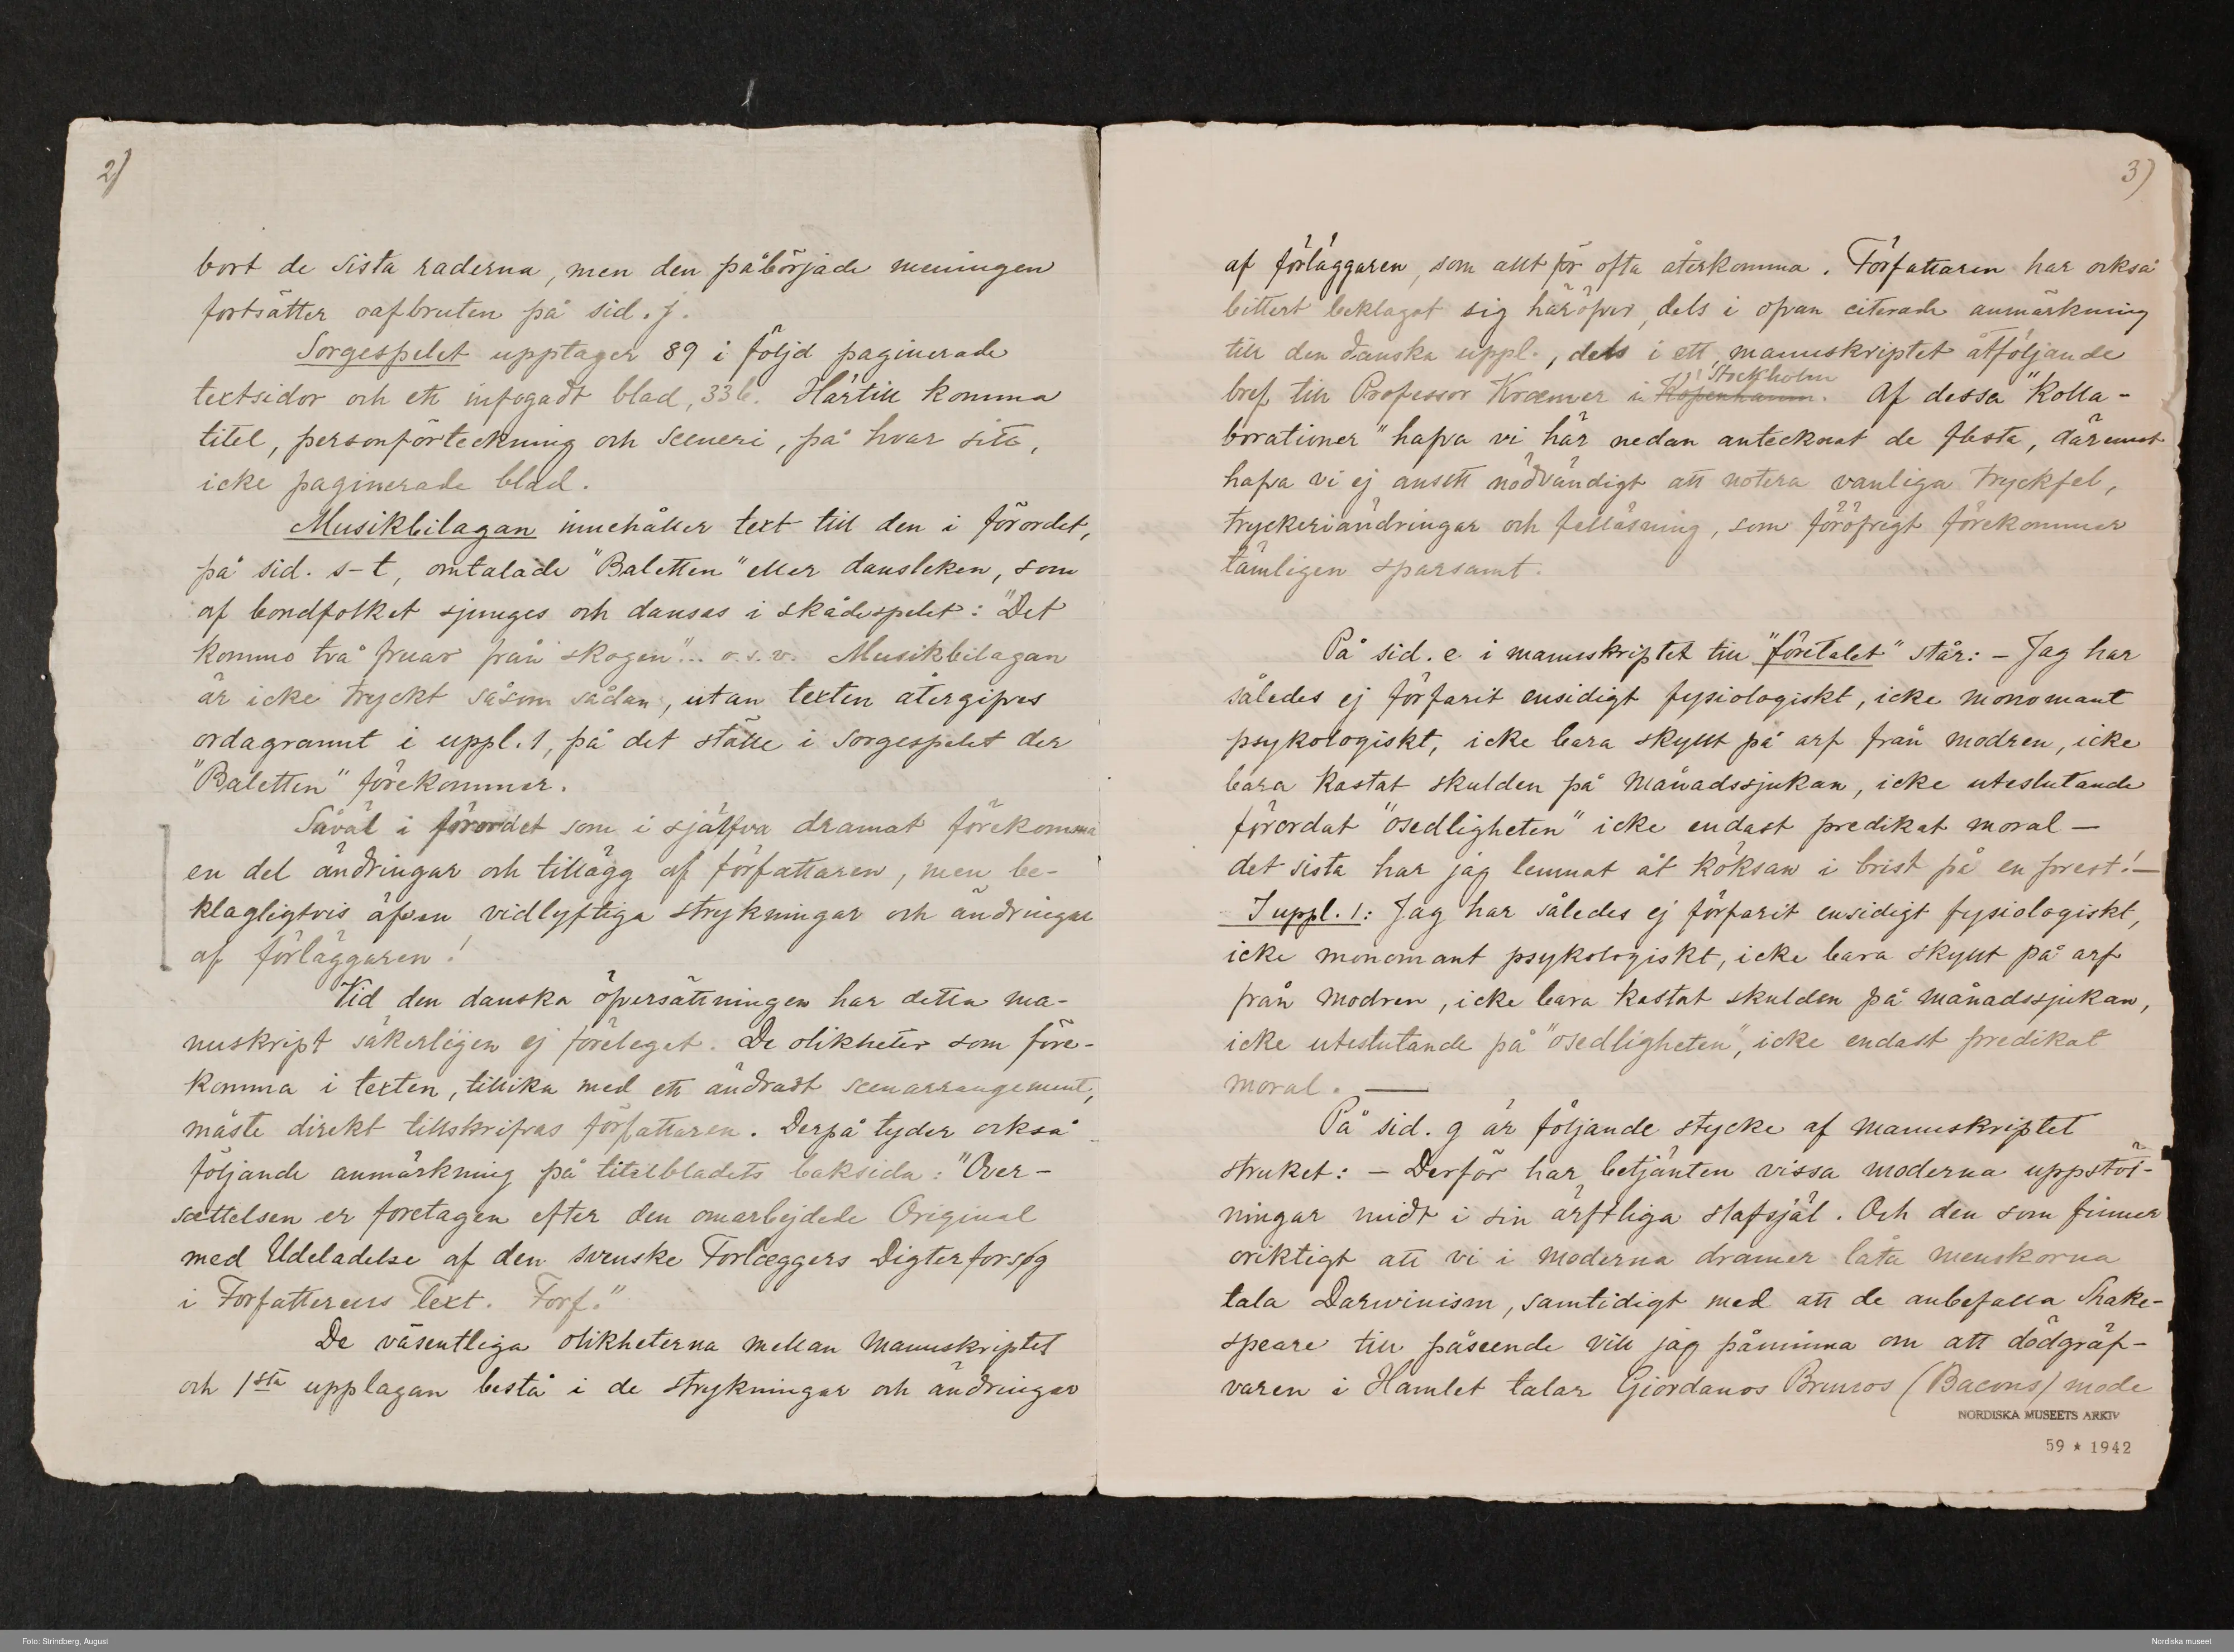 2)
bort de sista raderna, men den påbörjade meningen
fortsätter oafbruten på sid. j.
Sorgespelet upptager 89 i följd paginerade
textsidor och ett infogadt blad, 33 b. Härtill komma
titel, personförteckning och sceneri, på hvar sitt,
icke paginerade blad.
Musikbilagan innehåller text till den i förordet,
på sid. s-t, omtalade "Baletten" eller dansleken, som
af bondfolket sjunges och dansas i skådespelet: "Det
kommo två fruar från skogen"... o.s.v. Musikbilagan
är icke tryckt såsom sådan, utan texten återgifves
ordagrannt i uppl. 1, på det ställe i Sorgespelet der
"Baletten" förekommer.
Såväl i förordet som i sjelfva dramat förekomma
en del ändringar och tillägg af författaren, men be-
klagligtvis äfven vidlyftiga strykningar och ändringar
af förläggaren!
Vid den danska öfversättningen har detta ma-
nuskript säkerligen ej förelegat. De olikheter som före-
komma i texten, tillika med ett ändradt scenarrangement,
måste direkt tillskrifvas författaren. Derpå tyder också
följande anmärkning på titelbladets baksida: "Over-
sættelsen er foretagen efter den omarbejdede Original
med Udeladelse af den svenske Forlæggers Digterforsøg
i Forfatterens Text. Forf."
De väsentliga olikheterna mellan manuskriptet
och 1sta upplagan bestå i de strykningar och ändringar
3)
af förläggaren, som allt för ofta återkomma. Författaren har också
bittert beklagat sig häröfver, dels i ofvan citerade anmärkning
till den danska uppl., dels i ett, manuskriptet åtföljande
bref till Professor Kræmer i Kopenhamn. Stockholm Af dessa "kolla-
borationer" hafva vi här nedan antecknat de flesta, däremot
hafva vi ej ansett nödvändigt att notera vanliga tryckfel,
tryckeriändringar och felläsning, som föröfrigt förekommer
tämligen sparsamt.
På sid. e i manuskriptet till "företalet" står: – Jag har
således ej förfarit ensidigt fysiologiskt, icke monomant
psykologiskt, icke bara skyllt på arf från modren, icke
bara kastat skulden på månadssjukan, icke uteslutande
förordat "osedligheten" icke endast predikat moral —
det sista har jag lemnat åt köksan i brist på en prest! —
I uppl. 1: Jag har således ej förfarit ensidigt fysiologiskt,
icke monomant psykologiskt, icke bara skyllt på arf
från modren, icke bara kastat skulden på månadssjukan,
icke uteslutande på "osedligheten", icke endast predikat
moral. —
På sid. g är följande stycke af manuskriptet
struket: – Derför har betjänten vissa moderna uppstöt-
ningar midt i sin ärftliga slafsjäl. Och den som finner
oriktigt att vi i moderna dramer låta menskorna
tala Darwinism, samtidigt med att de anbefalla Shake-
speare till påseende vill jag påminna om att dödgräf-
varen i Hamlet talar Giordanos Brunos (Bacons) mode
NORDISKA MUSEETS ARKIV
59 ★ 1942
Foto: Strindberg, August
Nordiska museet